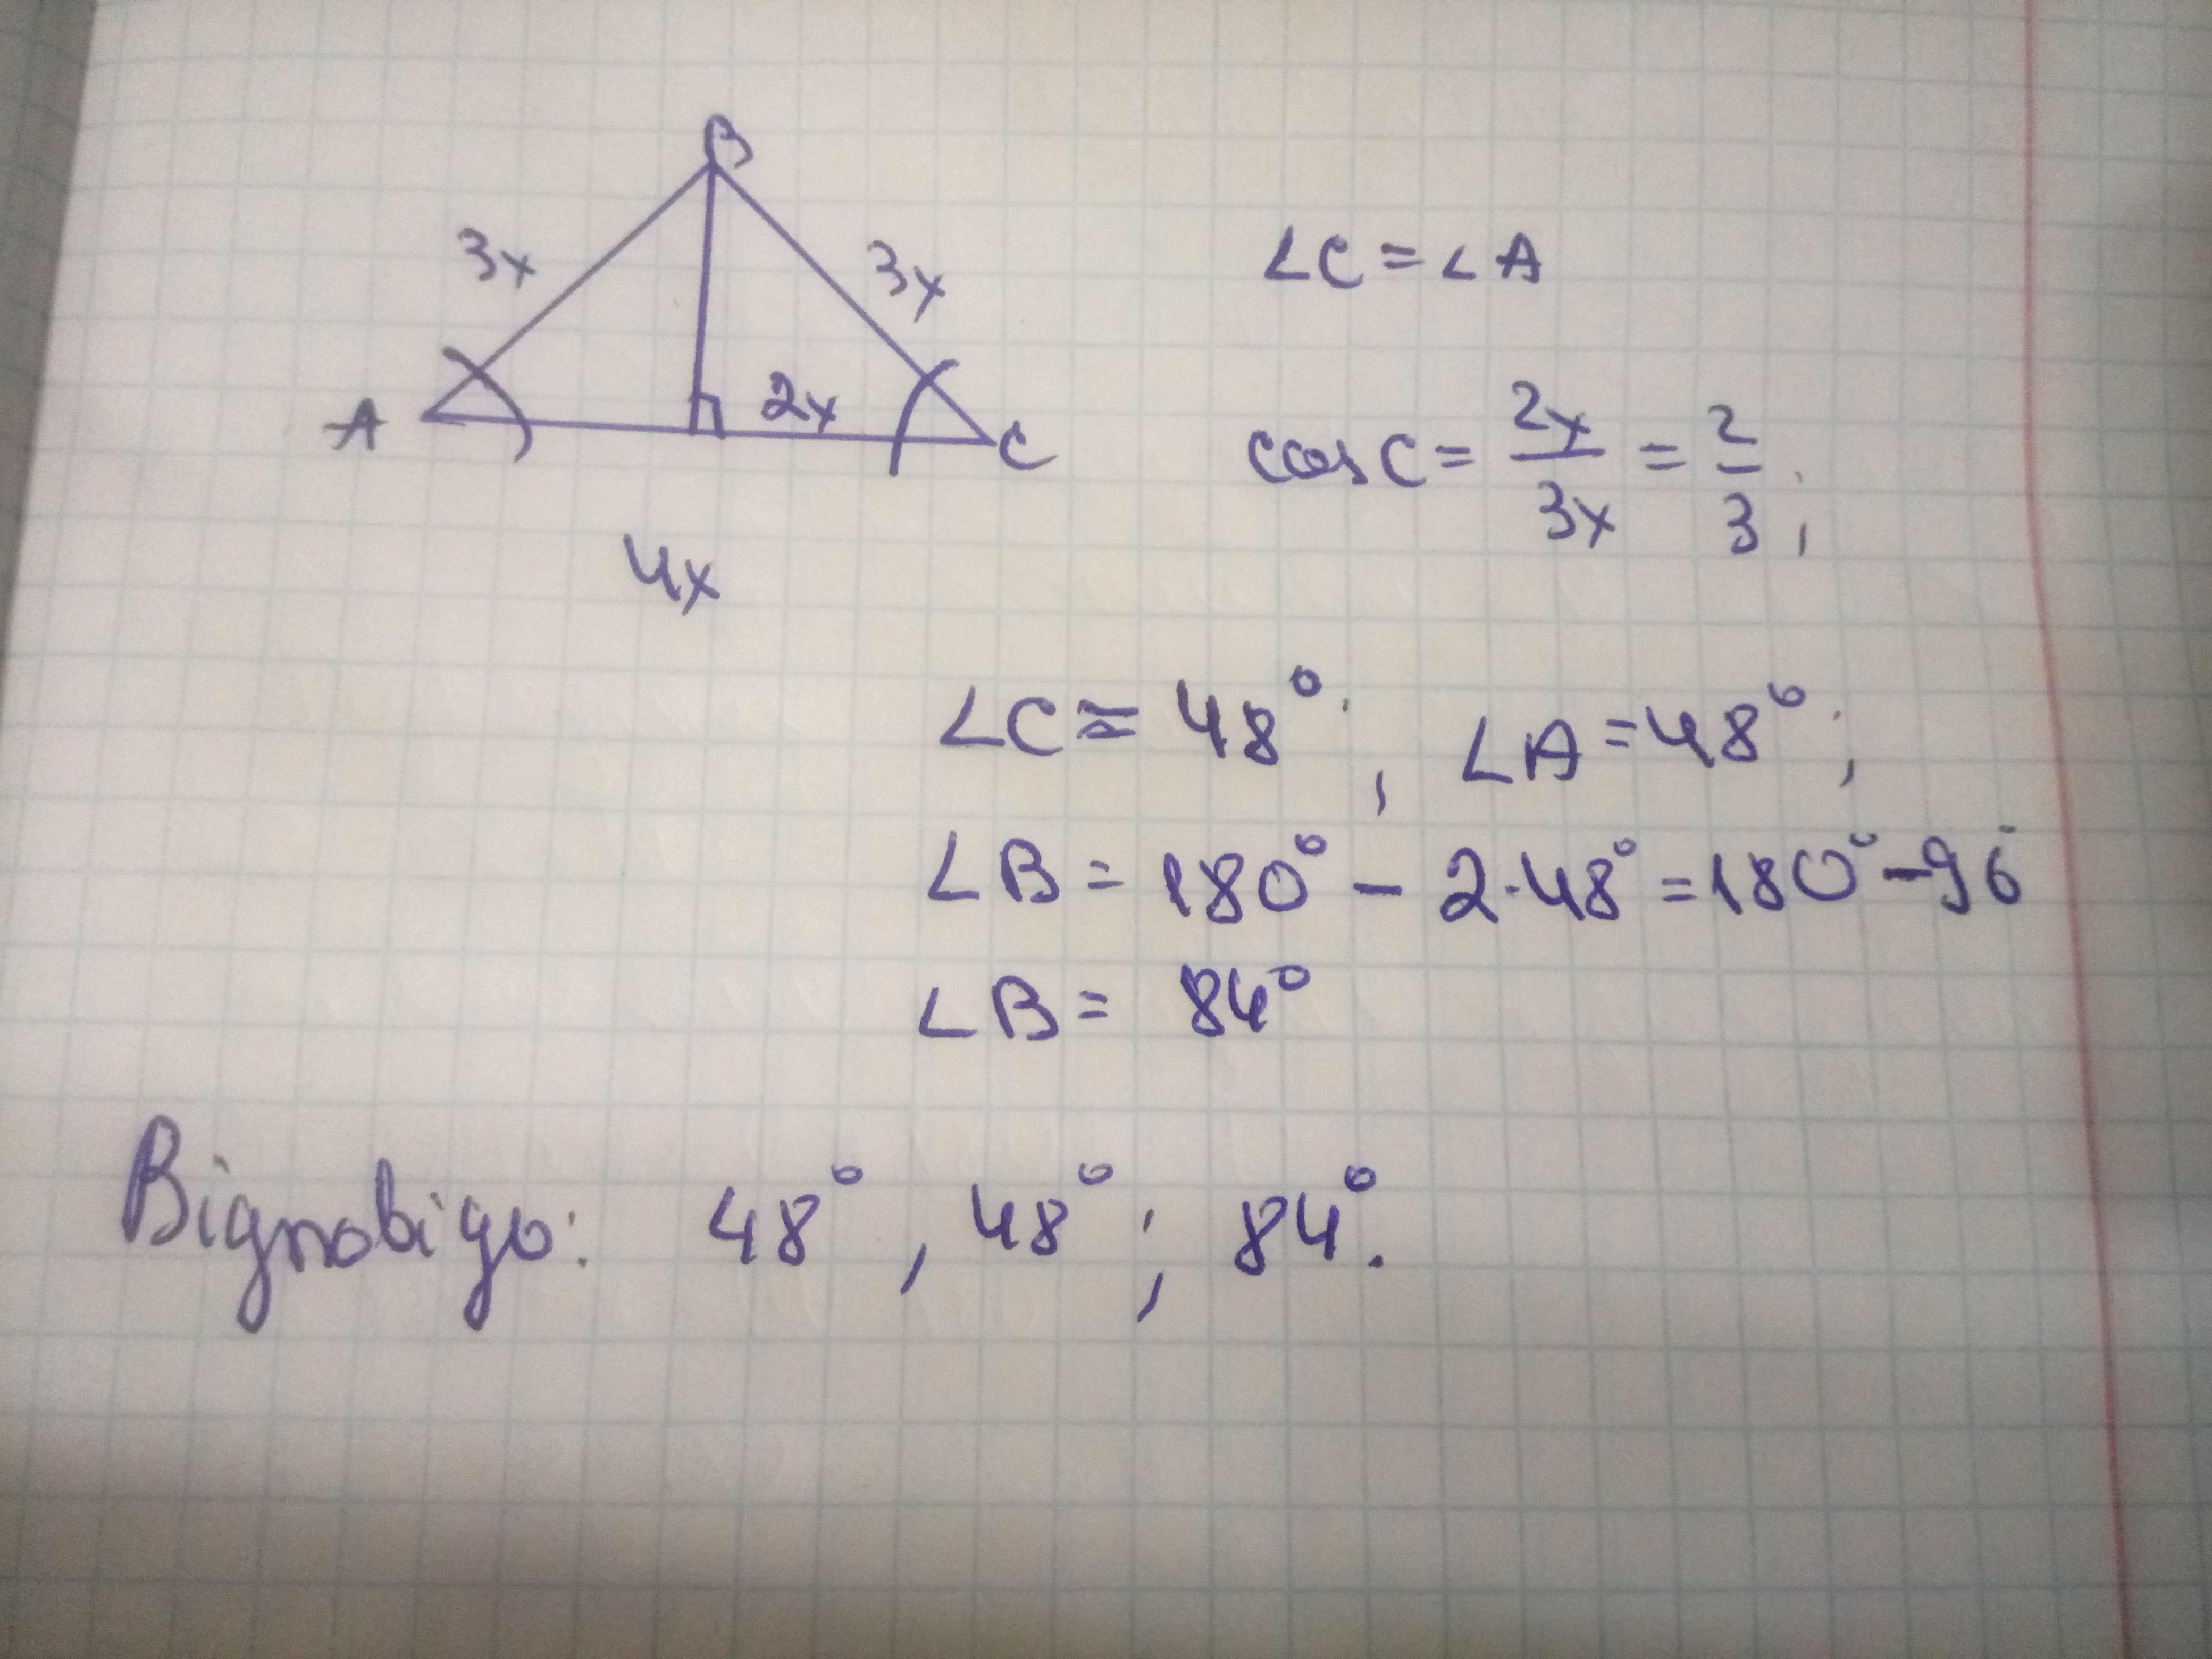 B
3x 3x
A 2x C
4x
∠C = ∠A
cos C = 2x/3x = 2/3;
∠C ≈ 48°; ∠A = 48°;
∠B = 180° - 2·48° = 180° - 96°
∠B = 84°
Відповідь: 48°, 48°; 84°.